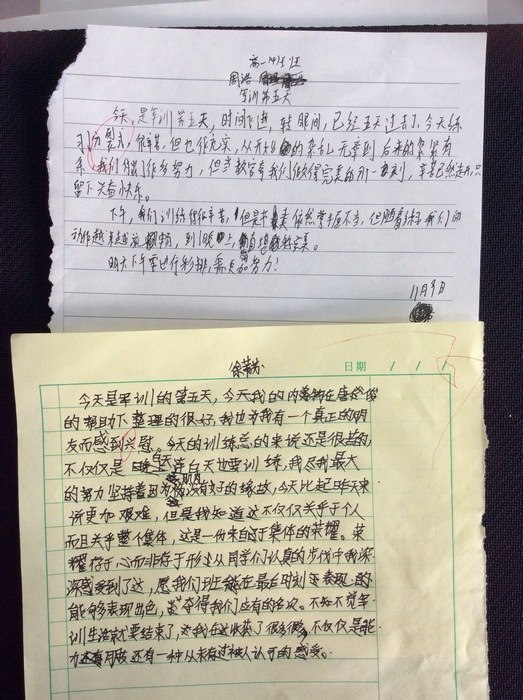 高一(4)班
周浩
军训第五天
今天是军训第五天,时间飞逝,转眼间,已经五天过去了,今天练
习分列式,很辛苦,但也很充实,从开始的杂乱无章到后来的整齐有
我们都很努力,但当教官夸我们做得完美的那一刻,辛苦已然
留下只有快乐。
下午,我们训练很辛苦,但是依然掌握不当,但随着练习我们的
动作越来越
明天下午要进行彩排,需更加努力!
11月9日
徐梦
日期 / / /
今天是军训的第五天,今天我的内务在唐
的帮助下整理的很好,我也为我有一个真正的朋
友而感到欣慰,今天的训练总的来说还是很苦的,
不仅仅是晚上连白天也要训练,我尽我最大
的努力坚持着因为没有好的缘故,今天比起昨天来
说更加艰难,但是我知道这不仅仅关乎于个人
而且关乎整个集体,这是一份来自于集体的荣耀。荣
耀存于心而非存于形从同学们认真的步伐中我深
深感受到了这,愿我们班能在最后时刻表现的
能够表现出色,夺得我们应有的名次。不知不觉军
训生活就要结束了,我在这收获了很多很多,不仅仅是能
力还有还有一种从未有过被人认可的感受。